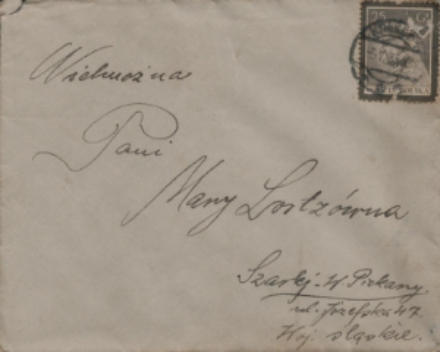 Wielmożna
Pani
Mary Lortzówna
Szarlej-W. Piekary.
ul. Józefska 47.
Woj. śląskie.
25